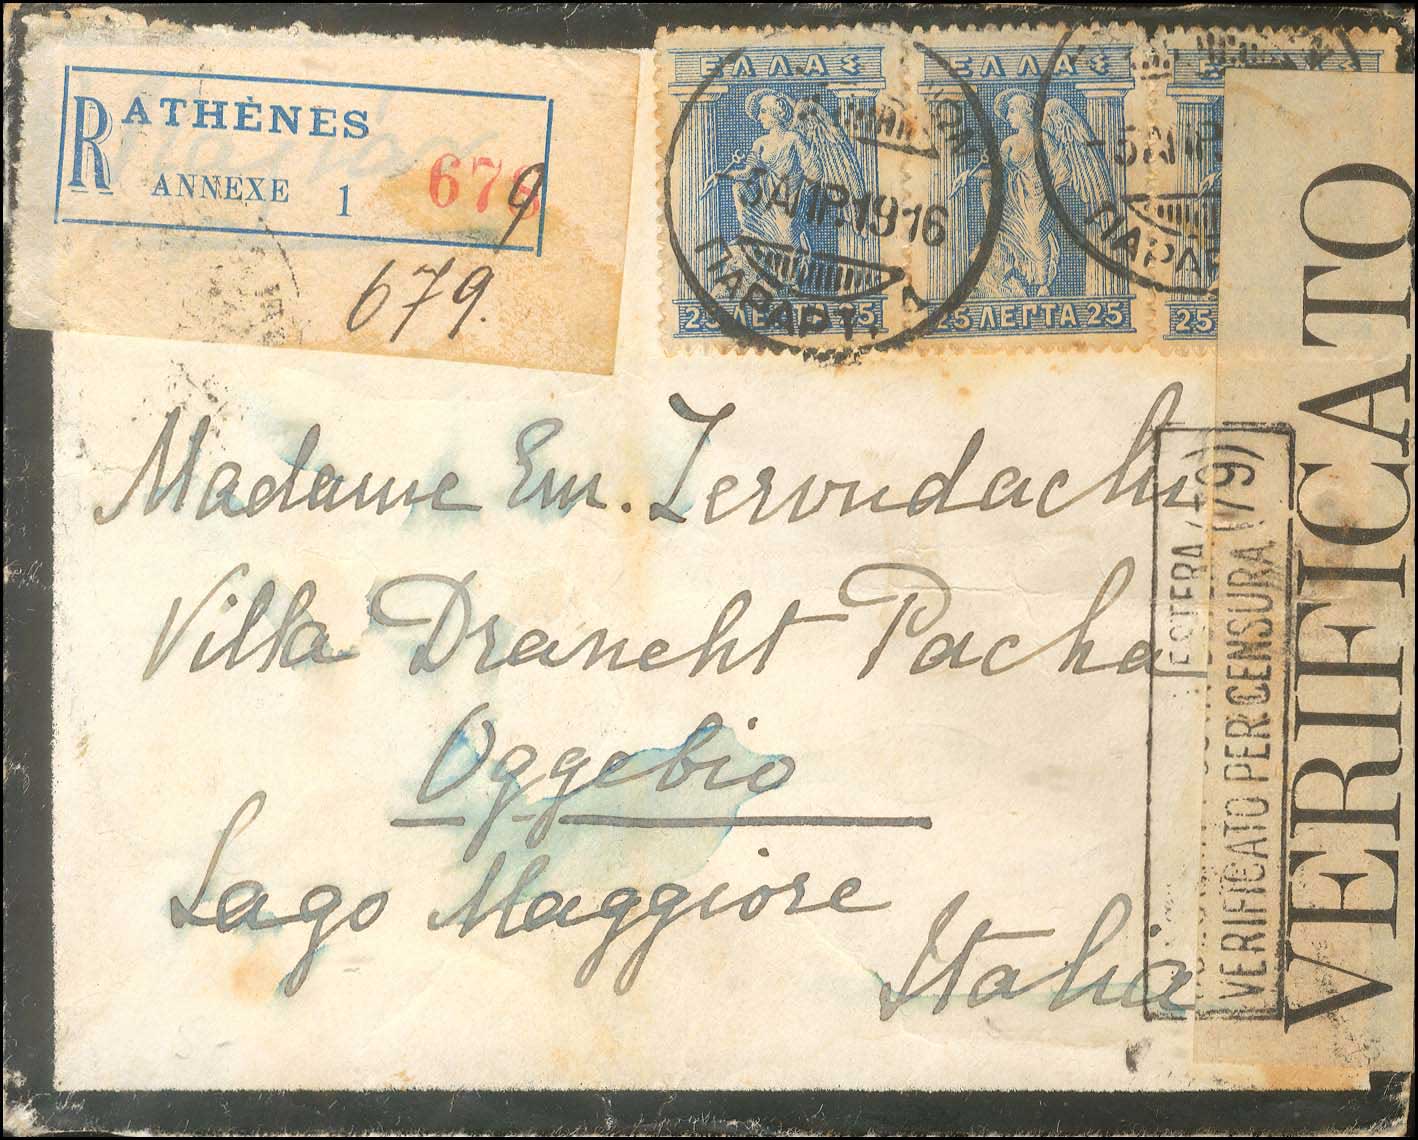 R ATHÈNES
ANNEXE 1 678 9
679.
ΕΛΛΑΣ ΕΛΛΑΣ
-5 ΑΠΡ. 1916
-5 ΑΠΡ
ΠΑΡΑΡΤ. 1
ΠΑΡΑΡ
25 ΛΕΠΤΑ 25
25 ΛΕΠΤΑ 25
25
Madame Em. Zervudachi
Villa Draneht Pacha
Oggebio
Lago Maggiore
Italia
ESTERA
VERIFICATO PER CENSURA (79)
VERIFICATO